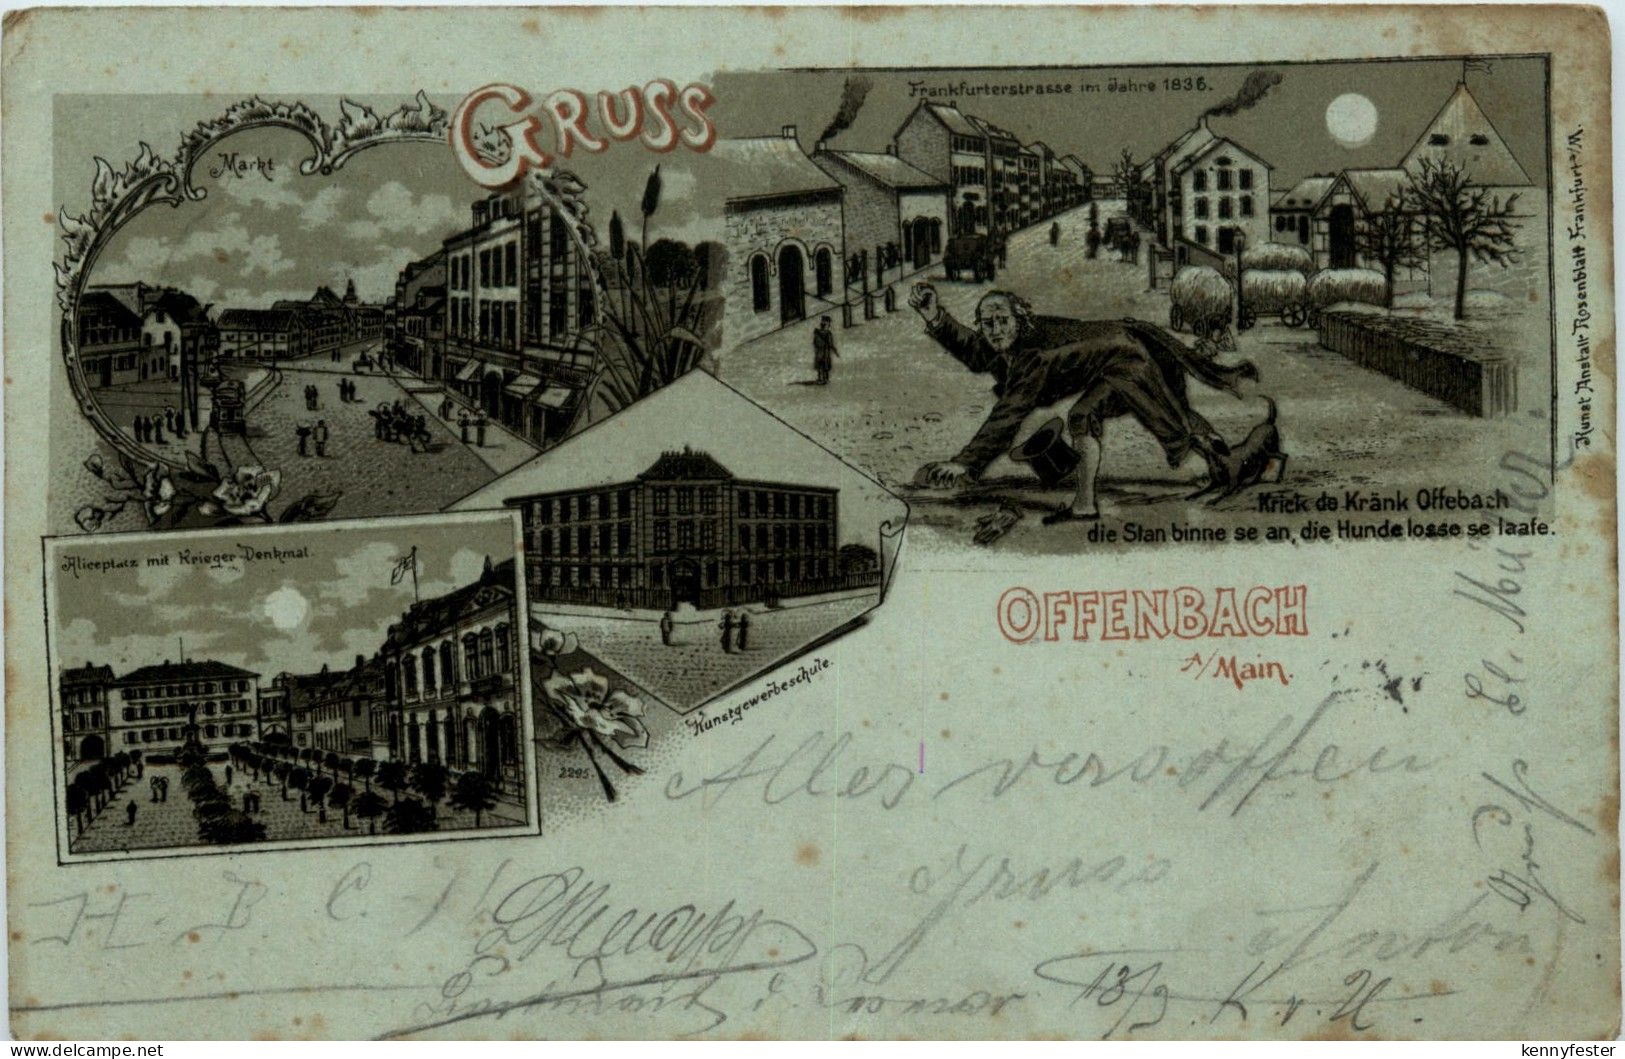 GRUSS
Markt
Frankfurterstrasse im Jahre 1836.
Kunst Anstalt Rosenblatt Frankfurt a/M.
Krick de Kränk Offebach
die Stan binne se an, die Hunde losse se laafe.
Aliceplatz mit Krieger-Denkmal.
Kunstgewerbeschule.
2295.
OFFENBACH
A/Main.
Alles versoffen
Gruss
Anton
Gruß El. Müller
H. B. C.
13/9
kennyfester